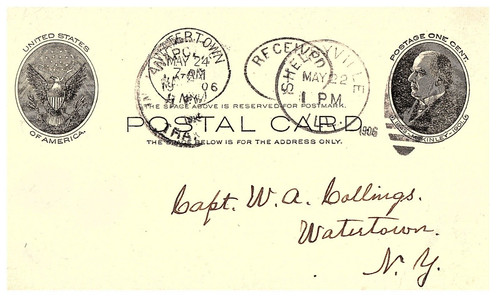 UNITED STATES
OF AMERICA.
WATERTOWN
MAY 24
7 - AM
06
N.Y.
RECEIVED
SHELBYVILLE
MAY 22
1 PM
ILL.
1906
POSTAGE ONE CENT.
McKINLEY
THE SPACE ABOVE IS RESERVED FOR POSTMARK.
POSTAL CARD.
THE SPACE BELOW IS FOR THE ADDRESS ONLY.
Capt. W. A. Collings.
Watertown.
N. Y.